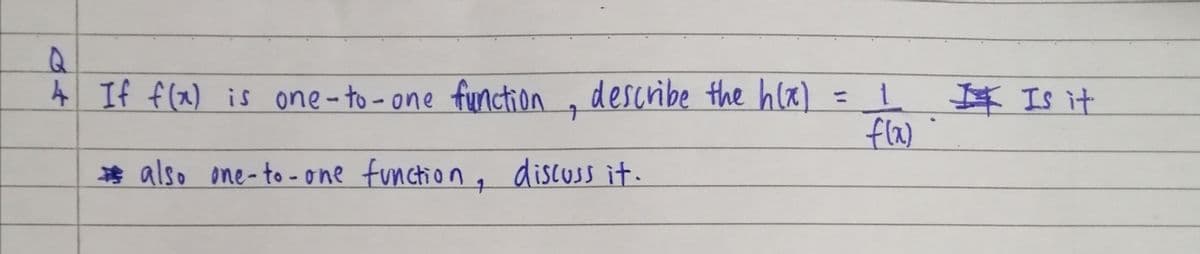 Q
4 If f(x) is one-to-one function, describe the h(x) = 1/f(x). Is it
also one-to-one function, discuss it.